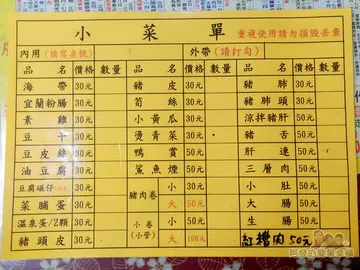 小菜單
重複使用請勿摧毀丟棄
內用(請寫桌號) 外帶(請打勾)
品名 價格 數量 品名 價格 數量 品名 價格 數量
海帶 30元 豬皮 30元 豬肺 30元
宜蘭粉腸 30元 筍絲 30元 豬肺頭 30元
素雞 30元 小黃瓜 30元 涼拌豬肝 50元
豆干 30元 燙青菜 30元 豬舌 50元
豆皮絲 30元 鴨賞 50元 肝連 50元
油豆腐 30元 鯊魚煙 50元 三層肉 50元
豆腐碰仔 30元 豬肉卷 小 30元 小肚 50元
菜脯蛋 30元 大 50元 大腸 50元
溫泉蛋/2顆 30元 小卷(小管) 小 50元 生腸 50元
豬頭皮 30元 大 100元 紅糟肉 50元